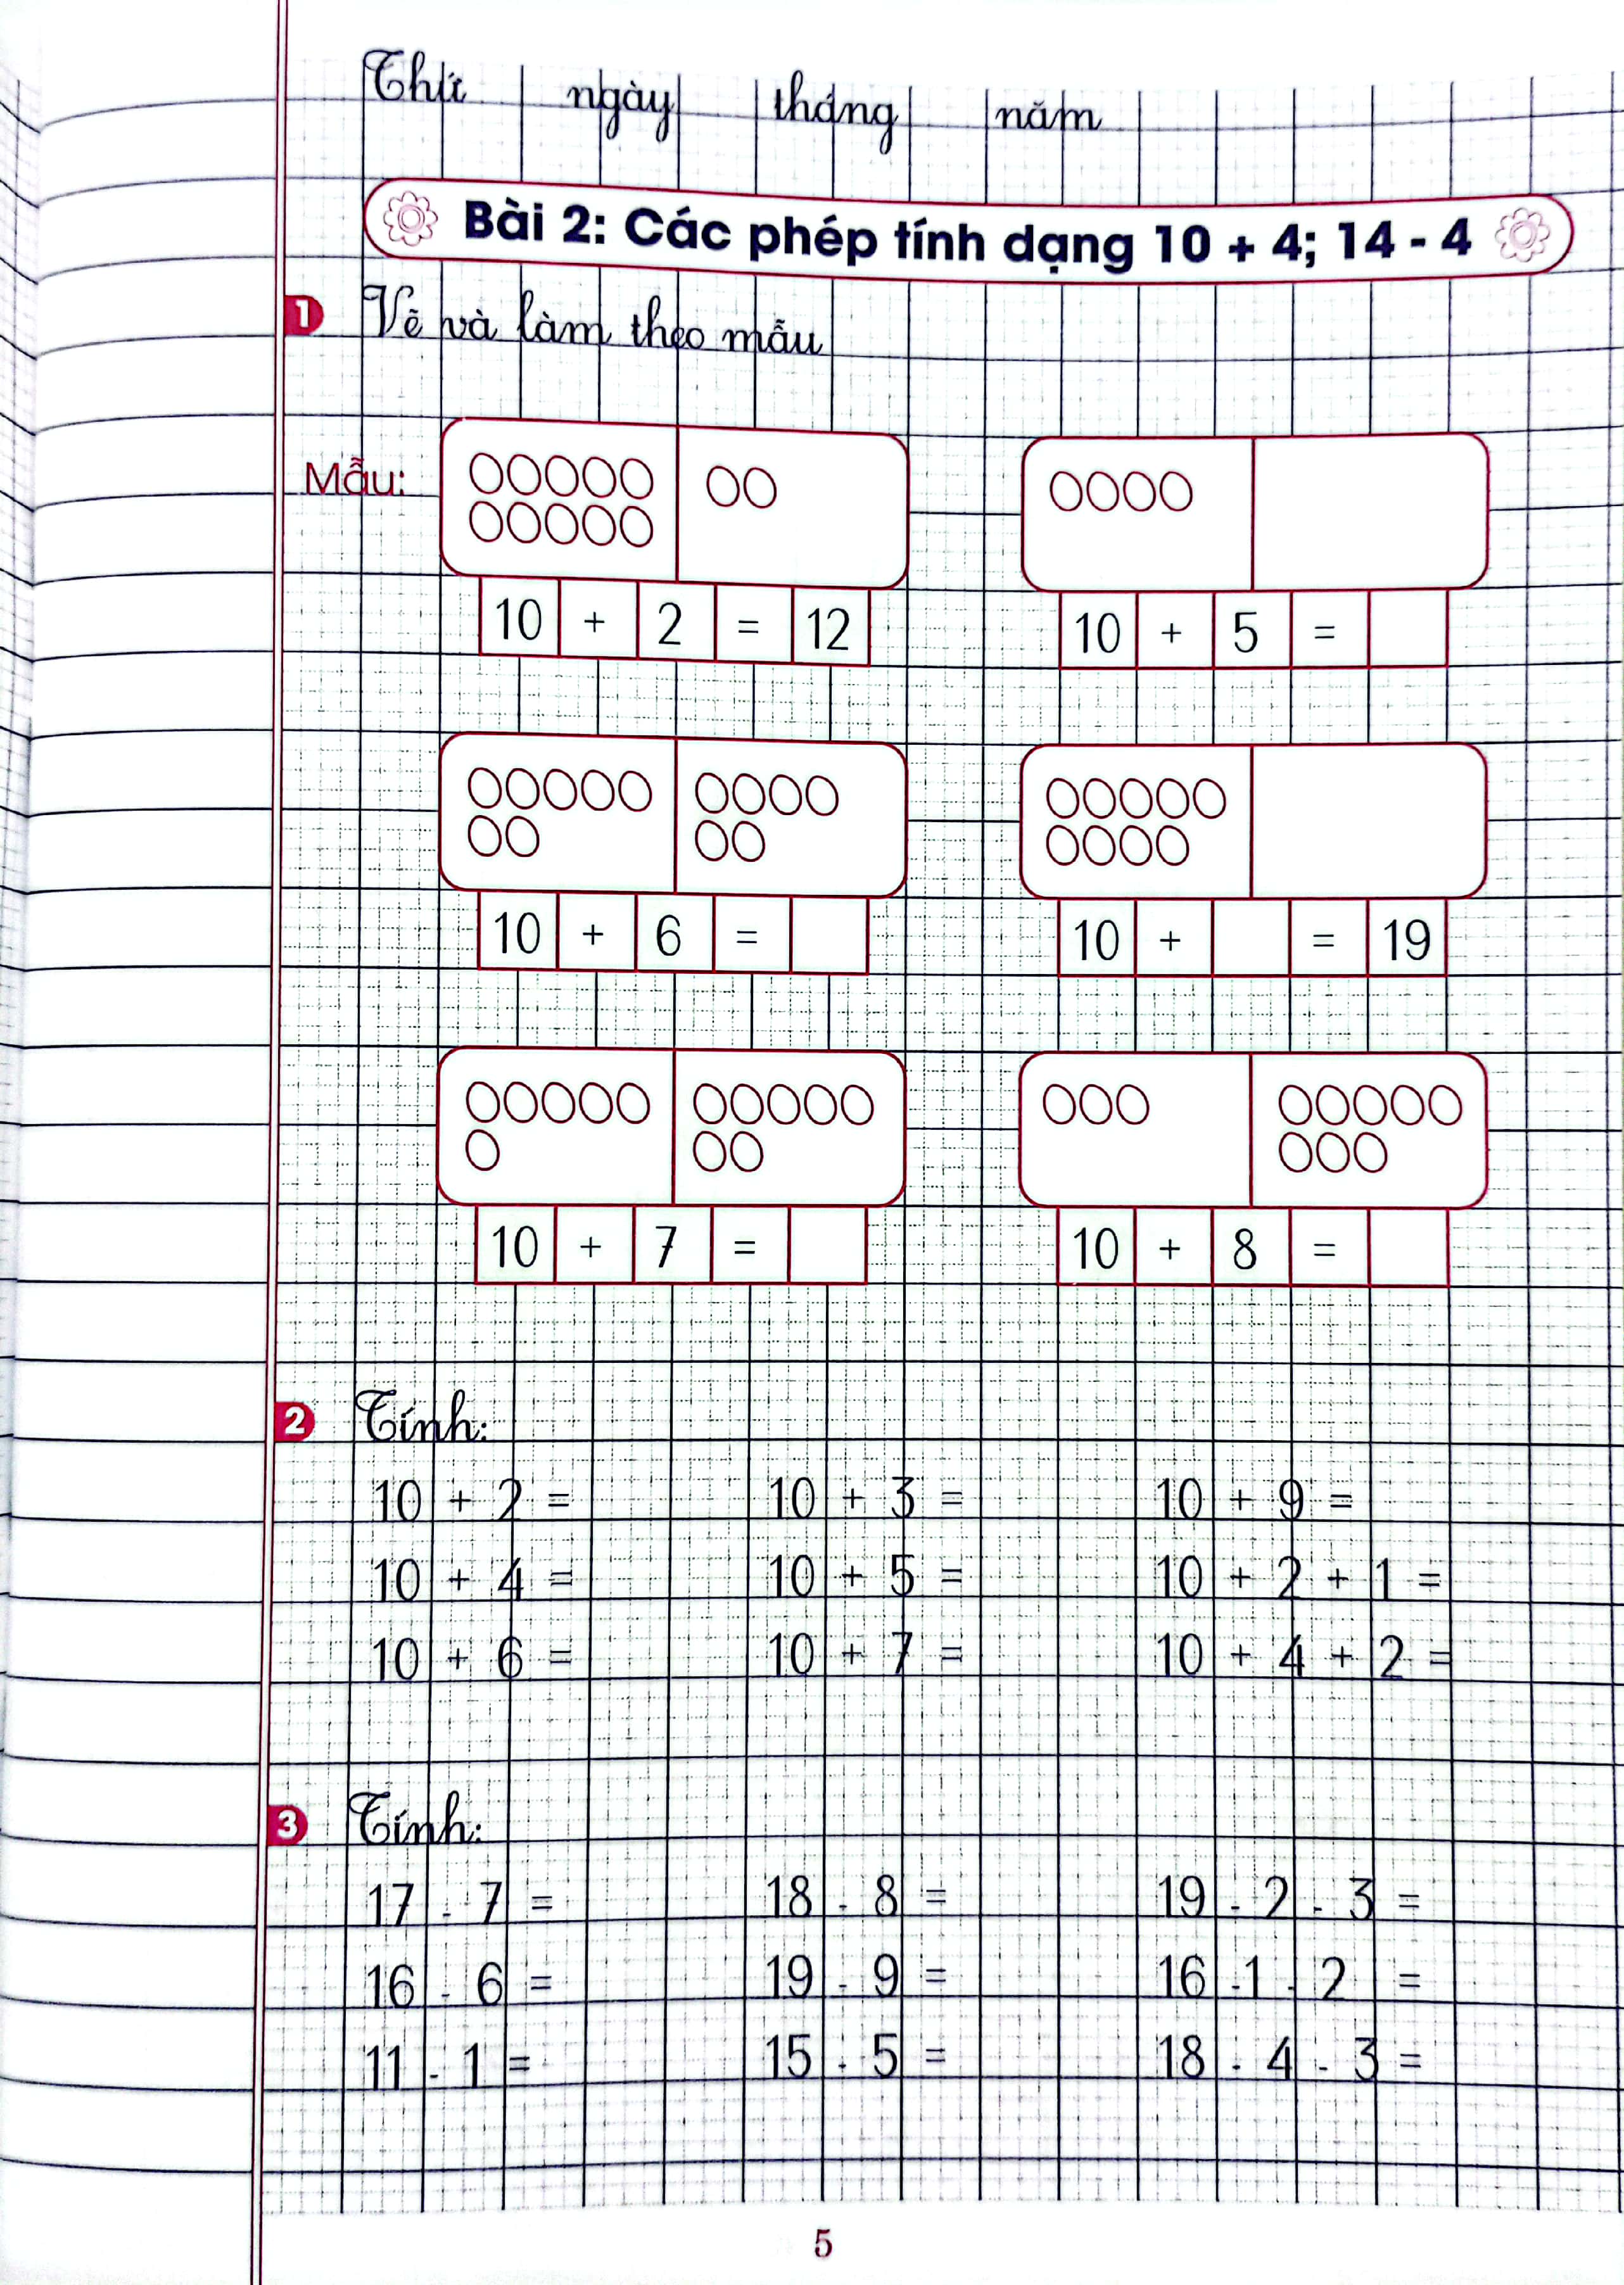 Thứ ngày tháng năm
Bài 2: Các phép tính dạng 10 + 4; 14 - 4
1 Vẽ và làm theo mẫu
Mẫu:
10 + 2 = 12
10 + 5 =
10 + 6 =
10 + = 19
10 + 7 =
10 + 8 =
2 Tính:
10 + 2 = 10 + 3 = 10 + 9 =
10 + 4 = 10 + 5 = 10 + 2 + 1 =
10 + 6 = 10 + 7 = 10 + 4 + 2 =
3 Tính:
17 - 7 = 18 - 8 = 19 - 2 - 3 =
16 - 6 = 19 - 9 = 16 - 1 - 2 =
11 - 1 = 15 - 5 = 18 - 4 - 3 =
5